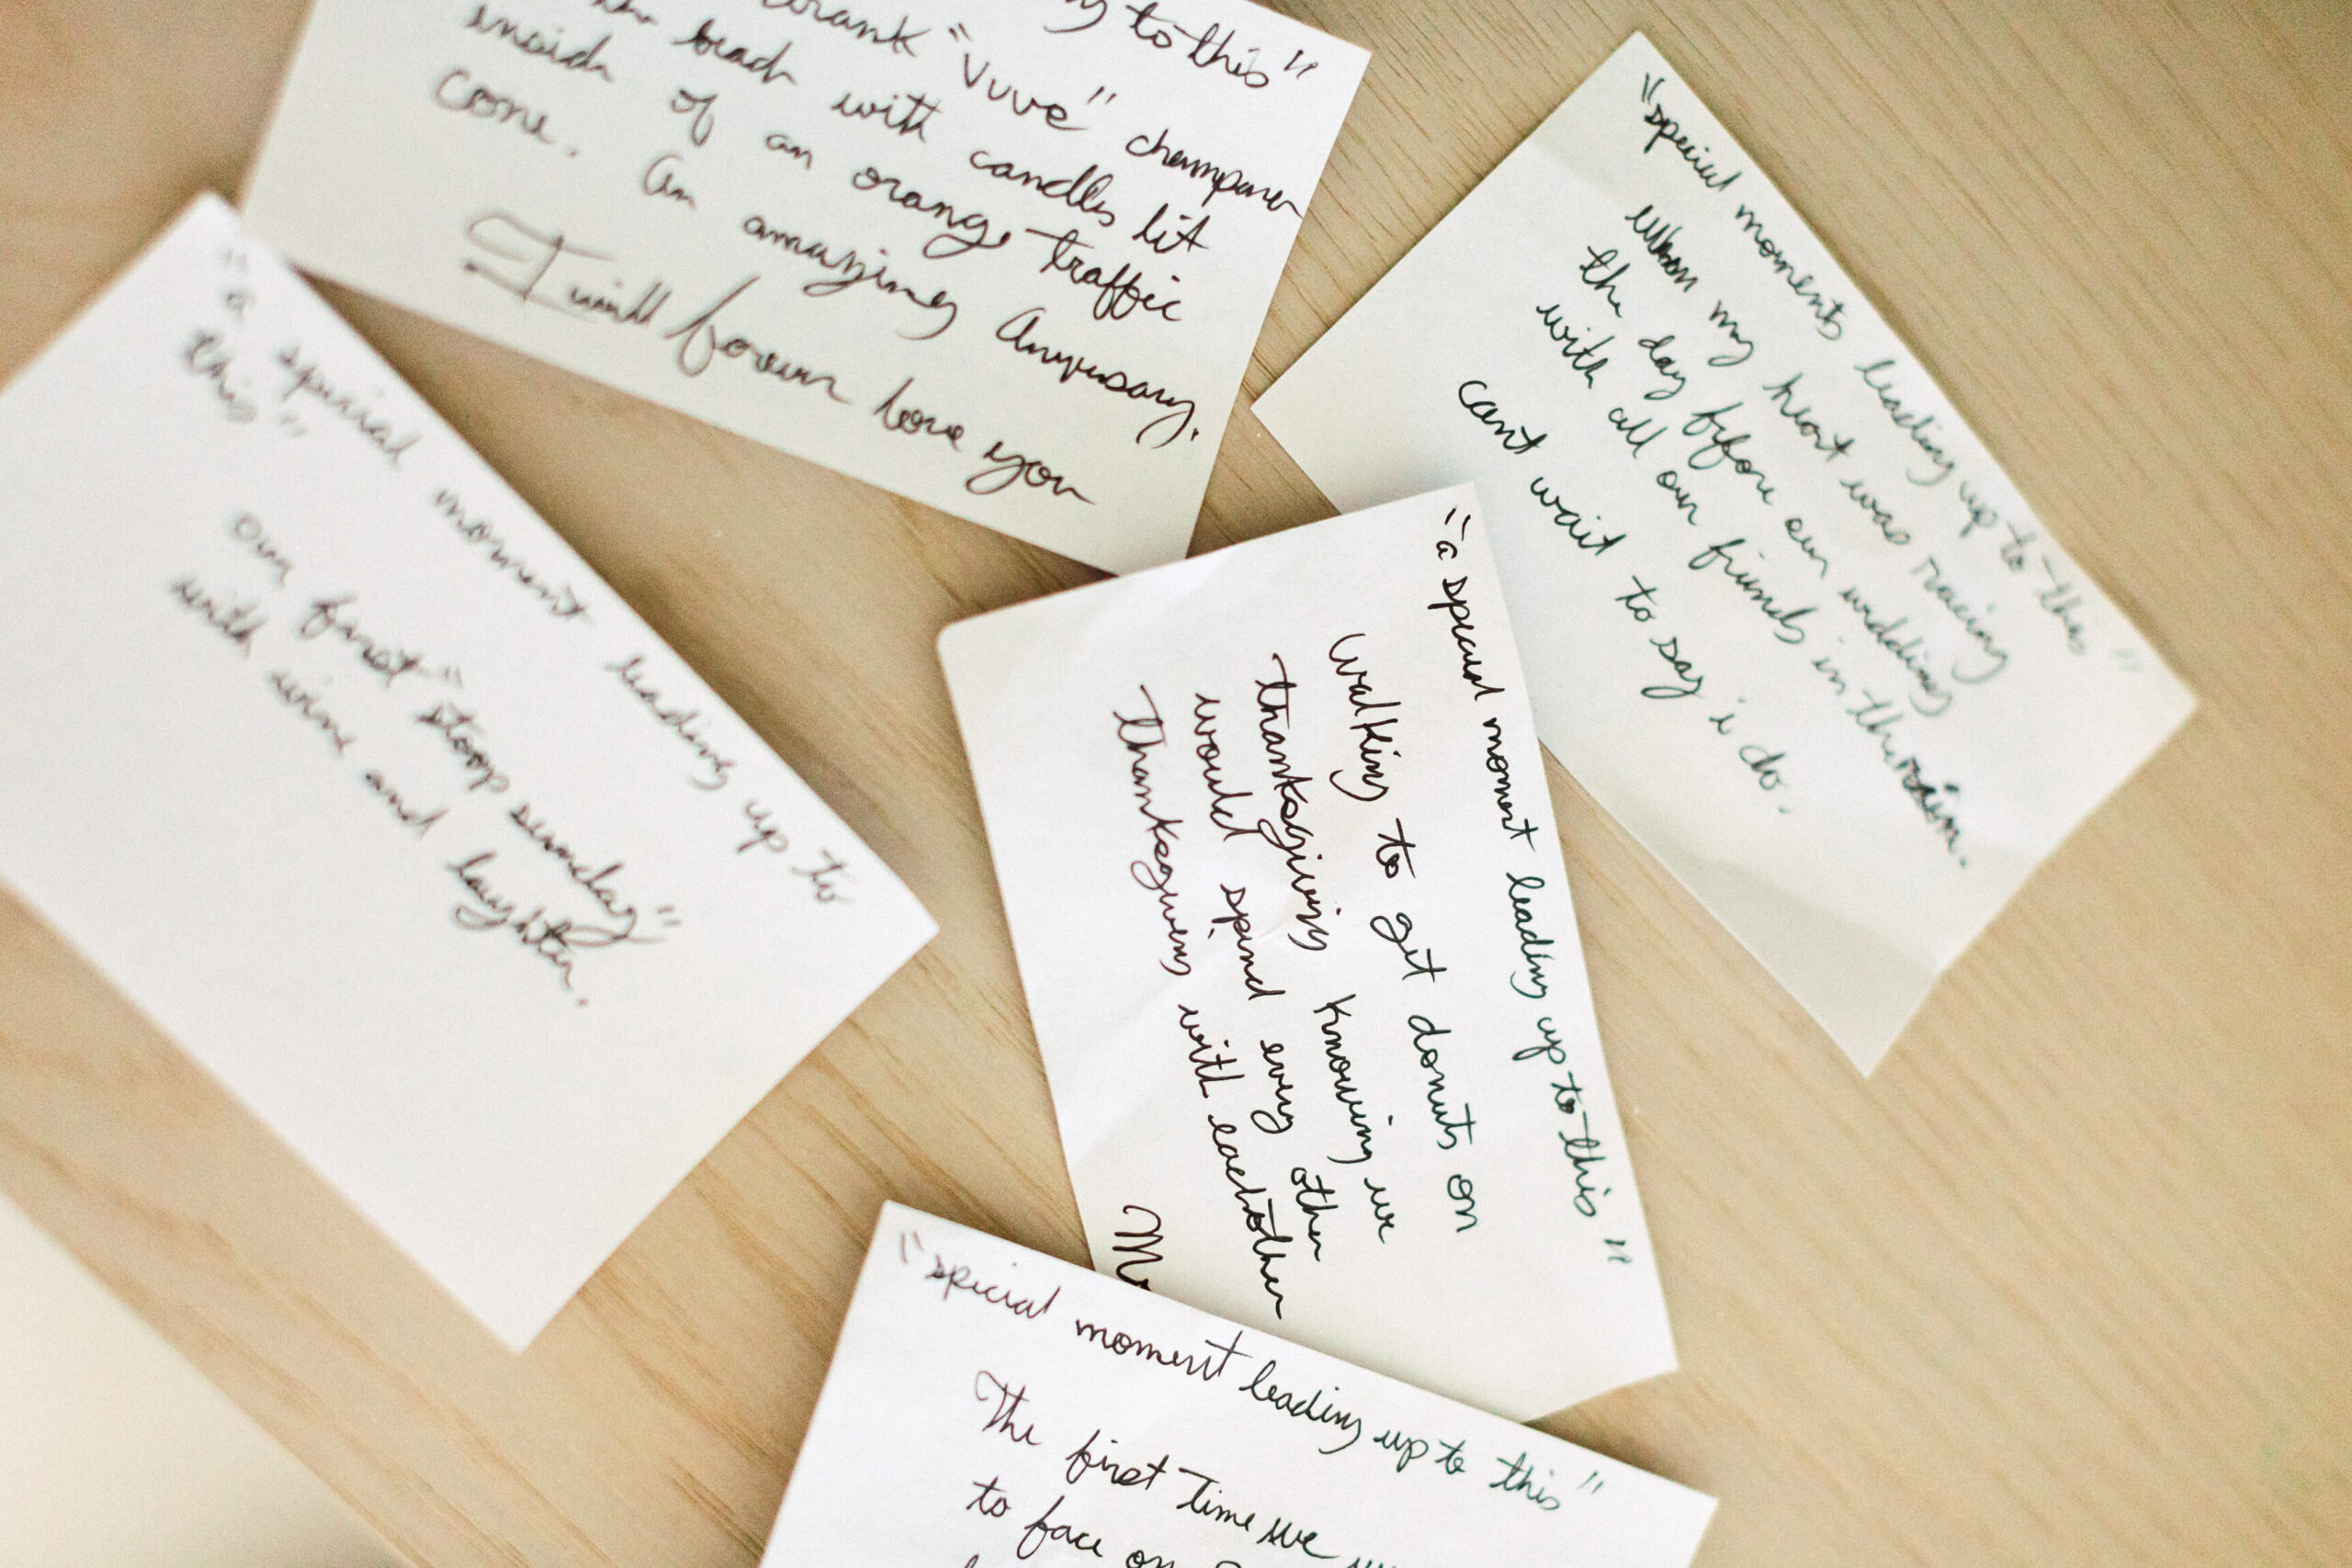 to this"
drank "Vuve"
beach with candles lit
inside of an orange traffic
cone. An amazing Anyversary.
I will forever love you
"special moments leading up to this"
When my heart was racing
the day before our wedding
with all our friends in the rain.
cant wait to say i do.
"a special moment leading up to
this"
our first "stoop sunday"
with wine and laughter.
"a special moment leading up to this"
Walking to get donuts on
thanksgiving knowing we
would spend every other
thanksgiving with eachother
"special moment leading up to this"
The first time we
to face on